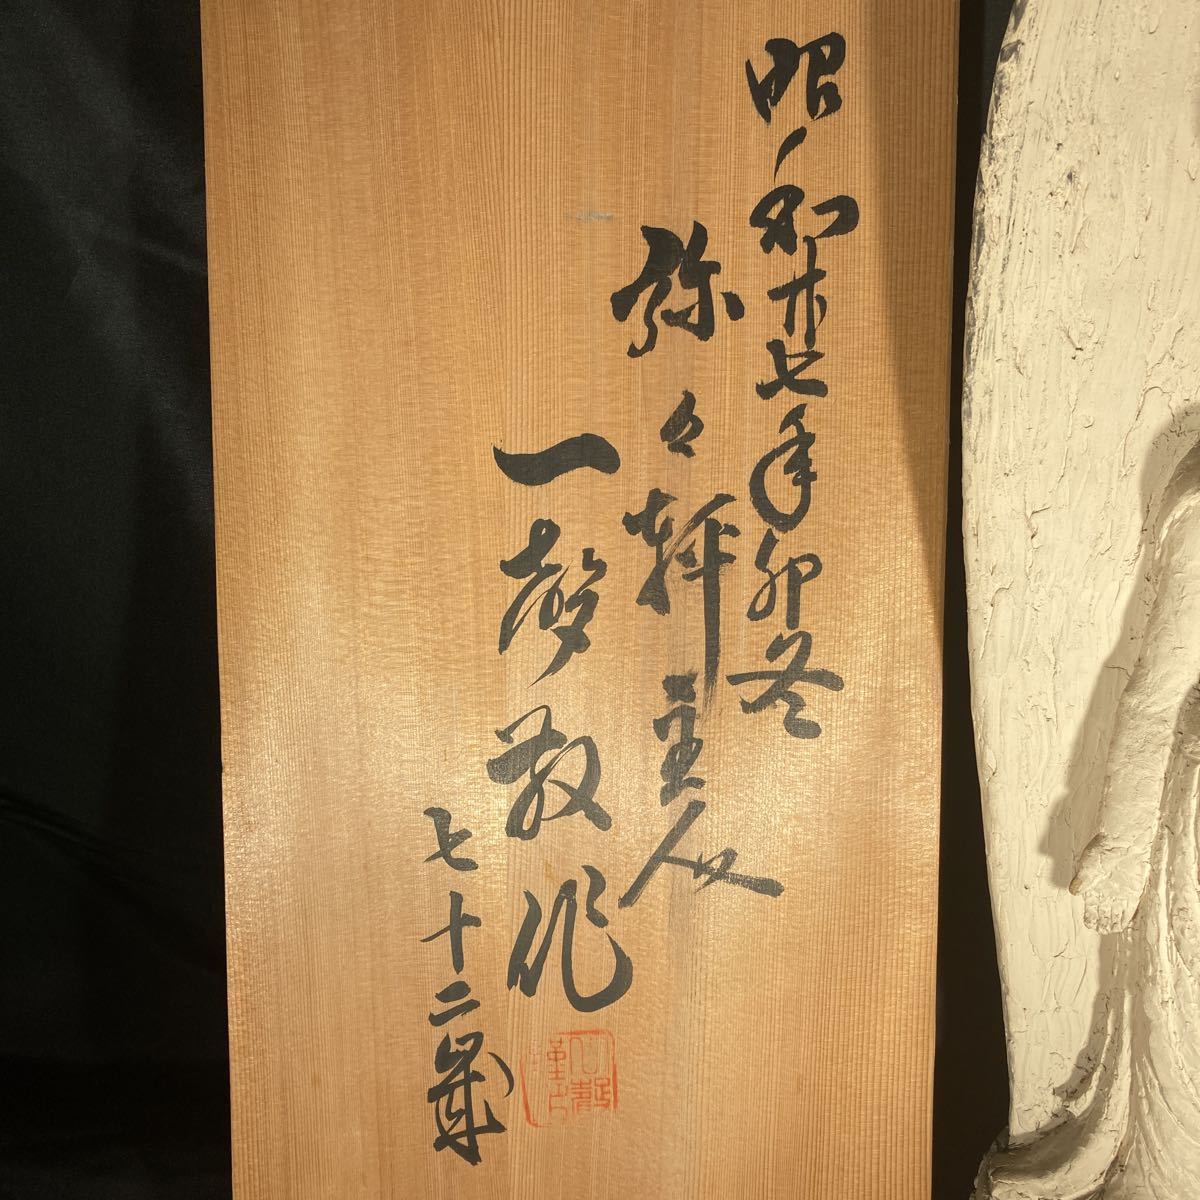 昭和廿七年冬
弥々軒主人
一聲敬作
七十二歳